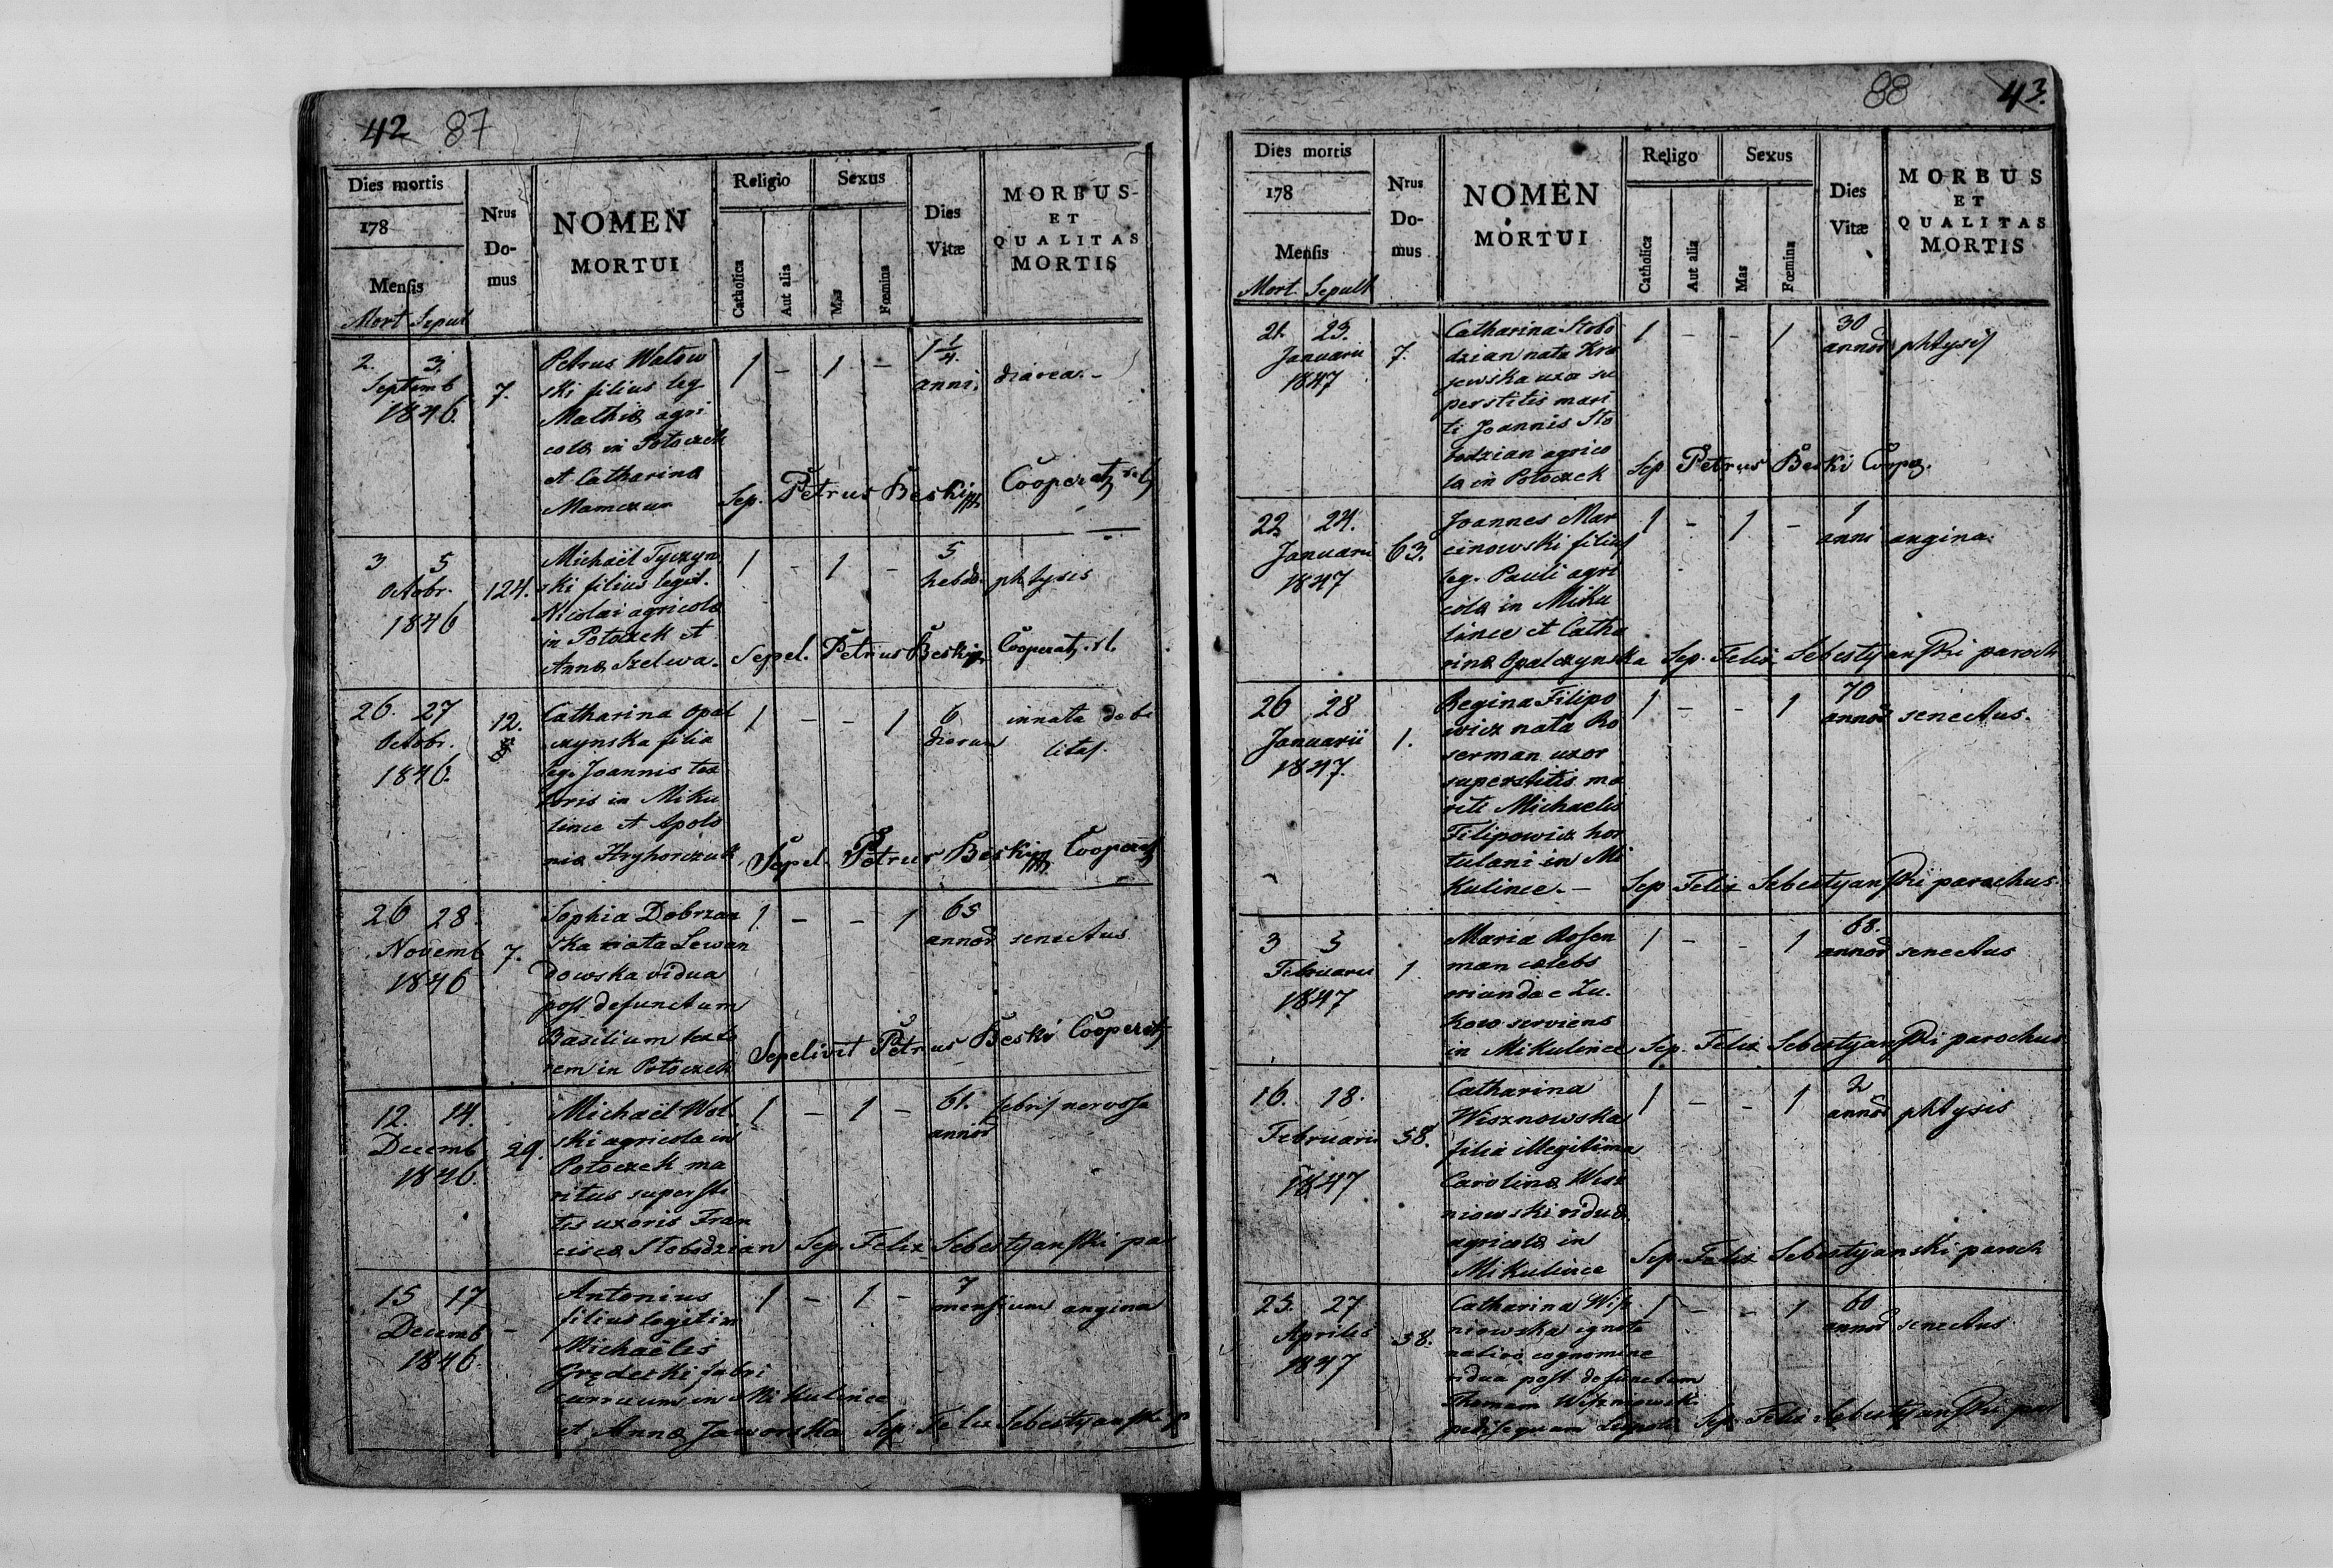 42 87
Dies mortis
178
Mensis
Mort Sepul
Nrus
Do-
mus
NOMEN
MORTUI
Religio
Catholica
Aut alia
Sexus
Mas
Fœmina
Dies
Vitæ
MORBUS
ET
QUALITAS
MORTIS
2. 3.
Septemb
1846.
7.
Petrus Watow
ski filius leg
Mathiæ agri
colæ in Potoczek
et Catharinæ
Mamczur
1 - 1 -
1 1/4.
anni
diarea. -
Sep. Petrus Beski Cooperat
3 5
Octobr.
1846
124.
Michaël Tyczyn
ski filius legit.
Nicolai agricolæ
in Potoczek et
Annæ Szelwa.
1 - 1 -
5
hebdo.
phtysis
Sepel. Petrus Beski Cooperat
26. 27
Octobr.
1846.
12.
Catharina Opal
czynska filia
leg. Joannis tex
toris in Miku
lince et Apolo
niæ Hryhorczuk
1 - - 1
6
dierum
innata debi
litas.
Sepel. Petrus Beski Cooperat
26 28.
Novemb
1846
7.
Sophia Dobrzan
ska nata Lewan
dowska vidua
post defunctum
Basilium texto
rem in Potoczek
1 - - 1
65
annor
senectus
Sepelivit Petrus Beski Cooperat
12. 14.
Decemb
1846.
29.
Michaël Wol
ski agricola in
Potoczek ma
ritus supersti
tis uxoris Fran
ciscæ Stobodzian
1 - 1 -
61.
annor
febris nervosa
Sep. Felix Sebestyanski par
15 17
Decemb
1846.
-
Antonius
filius legitim
Michaëlis
Gródecki fabri
curruum in Mikulince
et Annæ Jaworska
1 - 1 -
7
mensium
angina
Sep. Felix Sebestyanski p
88 43.
Dies mortis
178
Mensis
Mort. Sepult
Nrus
Do-
mus
NOMEN
MORTUI
Religo
Catholica
Aut alia
Sexus
Mas
Fœmina
Dies
Vitæ
MORBUS
ET
QUALITAS
MORTIS
21. 23.
Januarii
1847
7.
Catharina Stobo
dzian nata Kra
jewska uxor su
perstitis mari
ti Joannis Sto
bodzian agrico
la in Potoczek
1 - - 1
30
annor
phtysis
Sep Petrus Beski Cooper.
22 24.
Januarii
1847
63.
Joannes Mar
cinowski filius
leg. Pauli agri
colæ in Miku
lince et Catha
rinæ Opalczynska
1 - 1 -
1
anni
angina
Sep. Felix Sebestyanski paroch
26 28
Januarii
1847.
1.
Regina Filipo
wicz nata Ro
serman uxor
superstitis ma
riti Michaelis
Filipowicz hor
tulani in Mi
kulince. -
1 - - 1
70
annor
senectus.
Sep Felix Sebestyanski parochus
3 5
Februarii
1847
1.
Maria Rosen
man cælebs
orianda e Zu.
kow serviens
in Mikulince
1 - - 1
68.
annor
senectus
Sep. Felix Sebestyanski parochus
16. 18.
Februarii
1847
58.
Catharina
Wisznowska
filia illegitima
Carolinæ Wisz
niowski viduæ
agricolæ in
Mikulince
1 - - 1
2
annor
phtysis
Sep. Felix Sebestyanski paroch
25. 27
Aprilis
1847
58.
Catharina Wisz
niowska ignoto
nativo cognomine
vidua post defunctum
Thomam Wiszniowski
pedisequam
1 - - 1
60
annor
senectus
Sep Felix Sebestyanski par